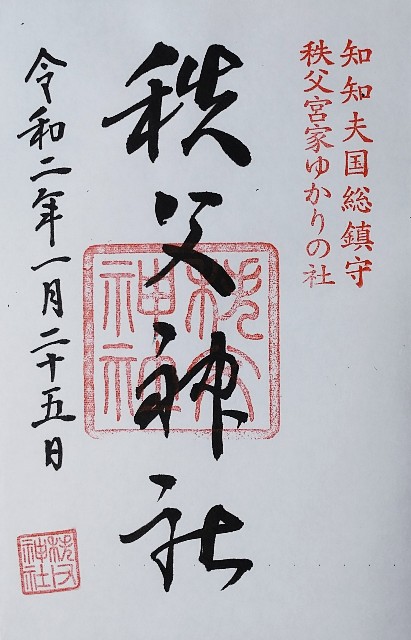 知知夫国総鎮守
秩父宮家ゆかりの社
秩父神社
秩父神社
令和二年一月二十五日
秩父神社